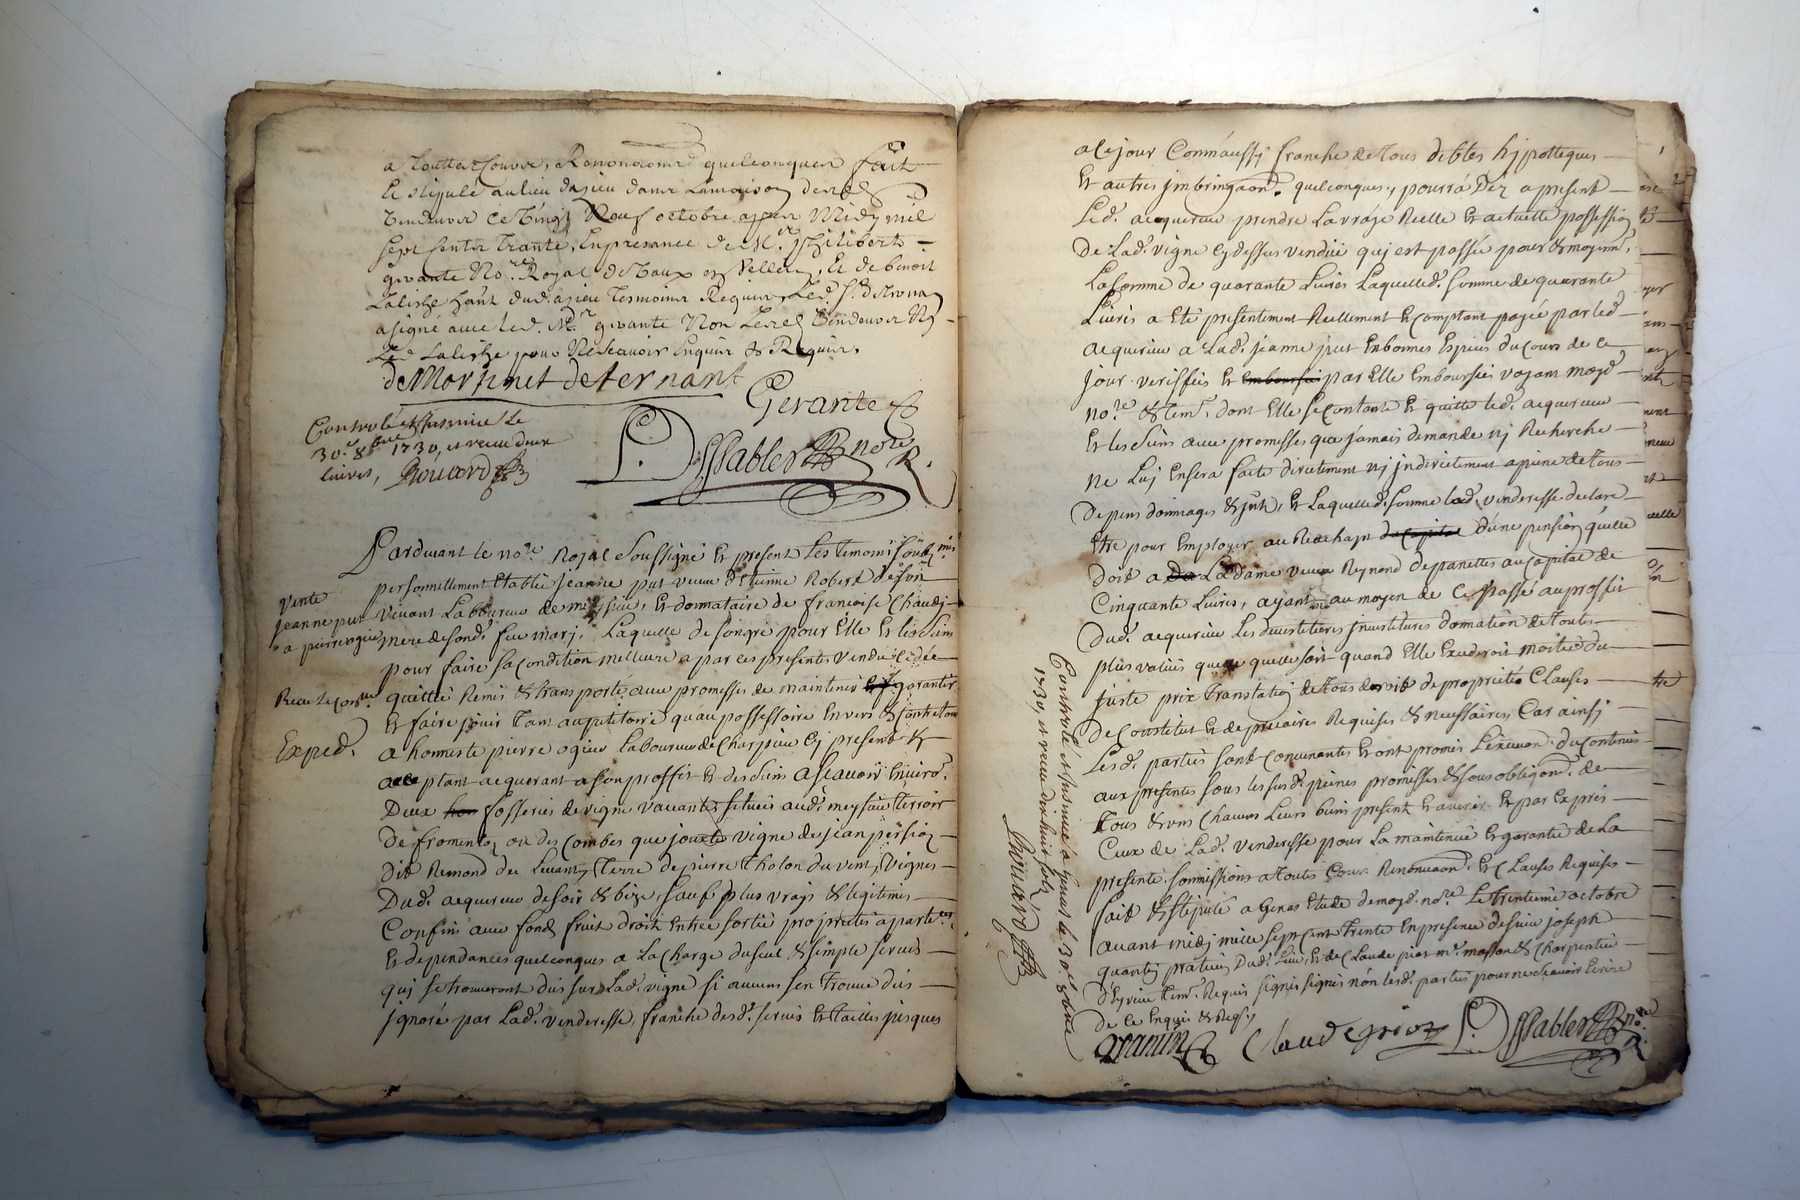 a Toutte Couses Renonciaons quelconques fait
et stipulé au lieu dasieu dans Lamaison
Vendeuvre ce Vingt Neuf octobre apres Midy mil
sept cents trante, En presance de Mr. philiberte
gerante No.re Royal de Vaux et Velleu, Et de benoit
dud. asieu Tesmoins Requis, Led. Sr. De
a signé avec led. Mr. gerante Non Vendeuvre Ny
Led. pour Ne Scavoir Enquis & Requis.
de Morginet de ternant
Gerante
Controlé et Insinué le
30.e 8bre 1730, et receu deux
livres, Drouard
P. Dessablers no.re R.
Pardevant le no.re Royal Soussigné Et present Les Temoins
personnellement Etablie Jeanne put veuve d'Etienne Robert
vente
Jeanne put
a pierre ogier
Vivant Laboureur de meyssieu, Et donnataire de francoise Chaudj
mere desond. feu marj, Laquelle de son gré pour Elle Et les Siens
pour faire sa condition meilleure a par ces presentes vendu cedée
quittée Remis & transporté avec promesses de maintenir garantir
Et faire jouir Tant au petitoire qu'au possessoire Envers & contre tous
Exped.
a honneste pierre ogier laboureur de Charpieu cy present &
acceptant acquerant a son proffit Et des Siens Ascavoir Environ
Deux fosserées de vigne vacante situées aud. meysieu Terroir
De fromentoz ou des Combes que jouxte vigne de jean
dit Remond du Levant, Terre de pierre tholon du vent, Vignes
Dud. acquereur de soir & bize, Sauf plus vrays & legitimes
Confins avec fond, fruit droit Entrée Sortie proprietés apartces.
Et dependances quelconques a La Charge du seul & simple Servis
quj se trouveront dus sur Lad. vigne si aucuns s'en trouve dus
jgnoré par Lad. venderesse, franche desd. servis Et tailles jusques
a ce jour Comm'aussy franche de Tous debtes hypotteques
Et autres jmbringaons. quelconques, pourra Déz a present
Led. acquereur prendre La vraye Reelle Et actuelle possession
De Lad. vigne Cy dessus vendue quj est passée pour & moyent.
La somme de quarante Livres Laquelle d. somme de quarante
Livres a Eté presentement Reellement & comptant payée par led.
acquereur a Lad. jeanne put En bonnes Especes du cours de ce
jour veriffiés Et par Elle Emboursées voyant moyd.
no.re & tem. dont Elle se contante Et quitte led. acquereur
Et les siens avec promesses que jamais demande nj Recherche
ne Luj En sera faite directement nj jndirectement a peine de tous
Depens dommages & jnts, Et Laquelle d. somme lad. venderesse declare
Etre pour Employer au Rachapt d'une pension qu'elle
doit a La Dame veuve Reynond au capital de
Cinquante Livres, ayant au moyen de Ce passé au proffit
Dud. acquereur Les devestitures jnvestitures donnation de toutes
plus values quelle soit quand Elle Excederoit moitié du
juste prix translation de Tous droits de proprietés Clauses
De Constitut Et de precaires Requises & necessaires, Car ainsi
Lesd. parties sont convenantes Et ont promis L'execution du contenu
aux presentes Sous les susd. peines promesses & sous obligaon. de
Tous & uns Chacuns Leurs biens present & avenir Et par Expres
Ceux de Lad. venderesse pour La maintenüe Et garantie de La
presente, sommissions a Toutes Cours Renonciaon. Et Clauses Requises
fait & stipulé a Genas Etude de moyd. no.re Le trentieme octobre
avant midj mille sept cent trente En presence de sieur joseph
quantin praticien Dud. Lieu, Et de Claude piot m.e masson & Charpentier
D'Eyrieu tem. Requis signés signés nón lesd. parties pour ne Scavoir Ecrire
de ce Enquis & Reqs.
quantin Claude piot P. Dessablers no.re R.
Controlé et Insinué à genas le 30.e 8bre
1730, et receu dix huit sols,
Drouard